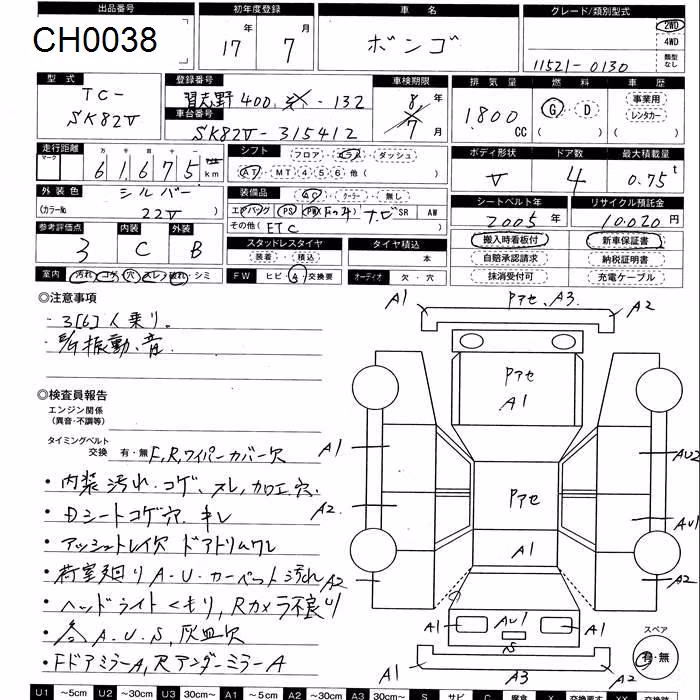 出品番号 初年度登録 車名 グレード/類別型式
CH0038 17年 7月 ボンゴ 11521-0130 2WD 4WD 類型なし
型式 登録番号 車検期限 排気量 燃料 車歴
TC-
SK82V
習志野 400 ・132 8年 7月
車台番号
SK82V-315412
1800 CC G・D ( ) 事業用 レンタカー ( )
走行距離 シフト ボディ形状 ドア数 最大積載量
マーク 万 千 百 十
6 1,6 7 5 km
フロア・コラム・ダッシュ
AT・MT 4 5 6 他( )
V 4 0.75 t
外装色 装備品 シートベルト年 リサイクル預託金
シルバー
(カラー№ 22V )
・クーラー・無し
エアバッグ PS PW ナビ SR AW
その他( ETC )
2005年 10,020円
参考評価点 内装 外装
3 C B
スタッドレスタイヤ タイヤ積込
装着・積込 本
搬入時看板付 新車保証書
自賠承認請求 納税証明書
抹消受付可 充電ケーブル
室内 汚れ・コゲ・穴・スレ・破れ・シミ FW ヒビ・キ・交換要 オーディオ 欠・穴
◎注意事項
・3[6]人乗り。
・振動、音
◎検査員報告
エンジン関係
(異音・不調等)
タイミングベルト
交換 有・無 F,R,ワイパーカバー欠
・内装 汚れ.コゲ、スレ,加工穴、
・Dシートコゲ穴.キレ
・アッシュトレイ欠 ドアトリムワレ
・荷室廻りA・U・カーペット汚れ
・ヘッドライトくもり,Rカメラ不良
・各A.U.S,灰皿欠
・FドアミラーA,RアンダーミラーA
A1 Pアセ、A3 A2
Pアセ
A1
A1 AU2
Pアセ
A2 AU1
A1
A2 A2
A1 AU1 A1
S
A1 A3 A2
スペア
有・無
U1 ~5cm U2 ~30cm U3 30cm~ A1 ~5cm A2 ~30cm A3 30cm~ S サビ C 腐食 X 交換要す XX 交換跡